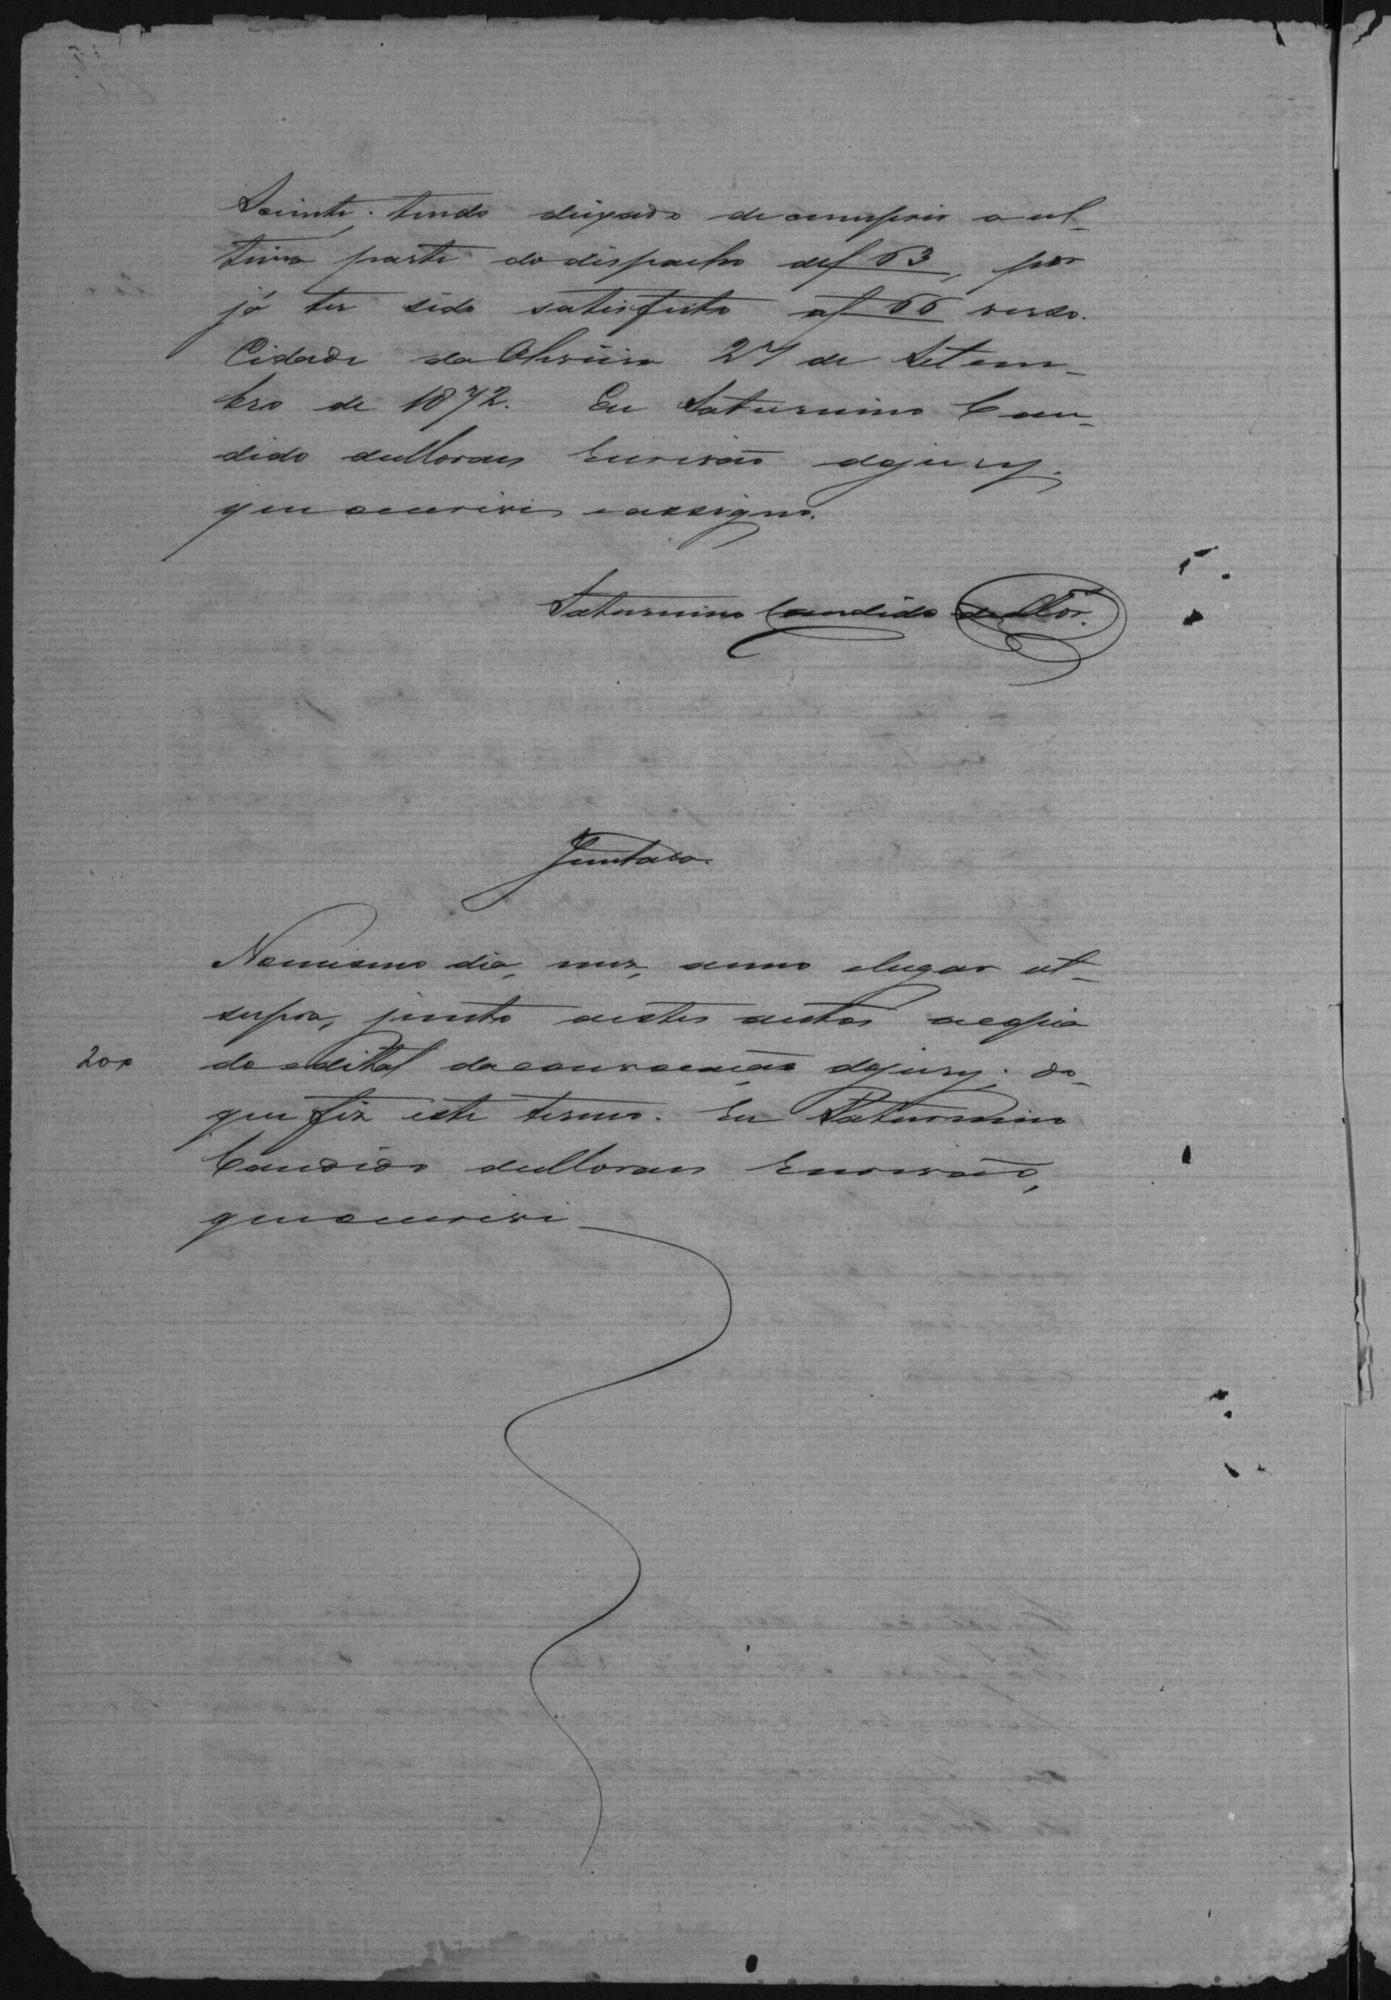 Sciente, tendo deixado de cumprir a ul-
tima parte do despacho def 63, por
já ter sido satisfeito af 66 verso.
Cidade da Oliveira 27 de Setem-
bro de 1872. Eu Saturnino Can-
dido de Moraes Escrivão do jury,
que escrevi e assigno.
Saturnino Candido de Mor.
Juntada.
No mesmo dia, mez, anno e lugar ut-
supra, junto a estes autos a copia
do edital da convocação do jury; do
que fiz este termo. Eu Saturnino
200
Candido de Moraes Escrivão,
que escrevi